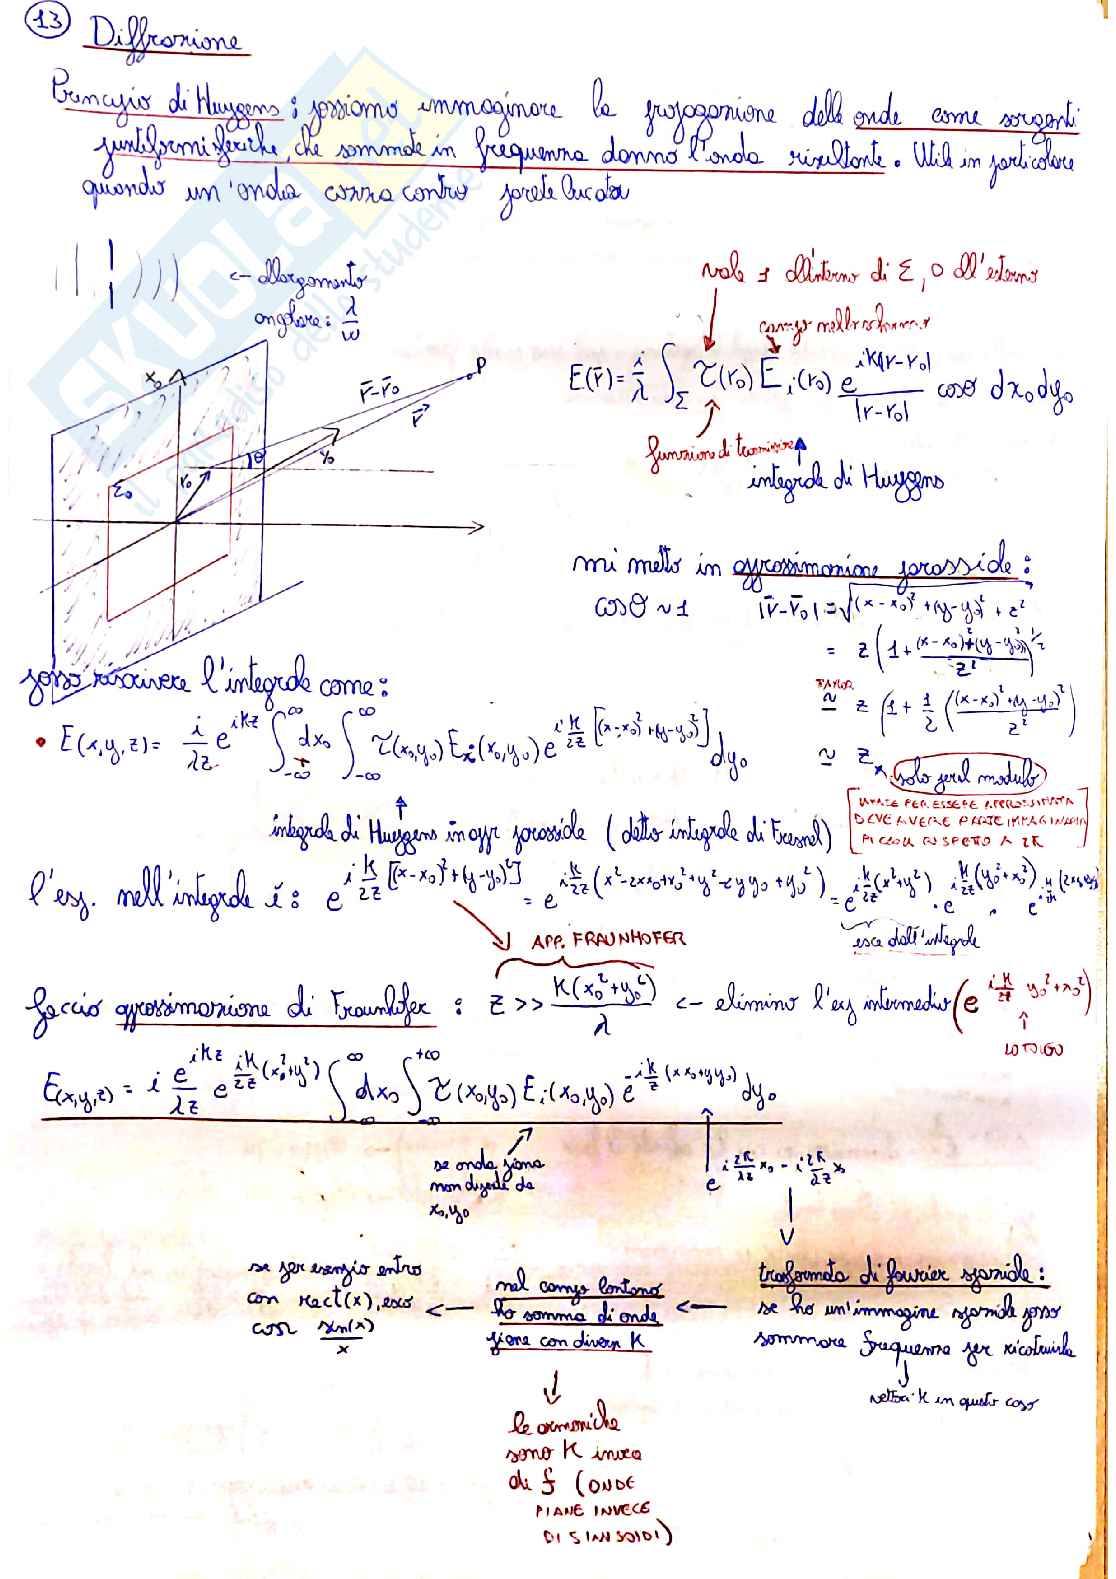 13
Diffrazione
Principio di Huygens: possiamo immaginare la propagazione delle onde come sorgenti
puntiformi sferiche, che sommate in frequenza danno l'onda risultante. Utile in particolare
quando un'onda cozza contro parete bucata
← allargamento
angolare: λ/w
vale 1 all'interno di Σ, 0 all'esterno
campo nello schermo
E(r̄) = i/λ ∫_Σ τ(r₀) E_i(r₀) e^{ik|r-r₀|}/|r-r₀| cosθ dx₀dy₀
funzione di trasmissione
integrale di Huygens
x₀
r̄-r̄₀
P
r̄
θ
r₀
y₀
Σ₀
mi metto in approssimazione parassiale:
cosθ ~ 1 |r̄-r̄₀| = √((x-x₀)²+(y-y₀)²+z²)
= z (1 + ((x-x₀)²+(y-y₀)²)/z²)^{1/2}
TAYLOR ≃ z (1 + 1/2 ((x-x₀)²+(y-y₀)²)/z²)
≃ z solo per al modulo
[LA FASE PER ESSERE APPROSSIMATA
DEVE AVERE PARTE IMMAGINARIA
PICCOLA RISPETTO A 2π]
posso riscrivere l'integrale come:
• E(x,y,z) = i/λz e^{ikz} ∫_{-∞}^{∞} dx₀ ∫_{-∞}^{∞} τ(x₀,y₀) E_i(x₀,y₀) e^{i k/2z [(x-x₀)²+(y-y₀)²]} dy₀
integrale di Huygens in appr parassiale (detto integrale di Fresnel)
l'esp. nell'integrale è: e^{i k/2z [(x-x₀)²+(y-y₀)²]} = e^{i k/2z (x²-2xx₀+x₀²+y²-2yy₀+y₀²)} = e^{i k/2z (x²+y²)} · e^{i k/2z (y₀²+x₀²)} ·
esce dall'integrale
APP. FRAUNHOFER
faccio approssimazione di Fraunhofer: z >> k(x₀²+y₀²)/λ ← elimino l'exp intermedio (e^{i k/2z y₀²+x₀²})
LO TOLGO
E(x,y,z) = i e^{ikz}/λz e^{ik/2z (x₀²+y²)} ∫_{-∞}^{∞} dx₀ ∫_{-∞}^{+∞} τ(x₀,y₀) E_i(x₀,y₀) e^{-i k/z (xx₀+yy₀)} dy₀
se onda piana
non dipende da
x₀,y₀
trasformata di fourier spaziale:
se ho un'immagine spaziale posso
sommare frequenze per ricostruirla
vettori k in questo caso
← nel campo lontano
ho somma di onde
piane con diversi k
← se per esempio entro
con rect(x), esco
con sin(x)/x
le armoniche
sono k invece
di f (ONDE
PIANE INVECE
DI SINUSOIDI)